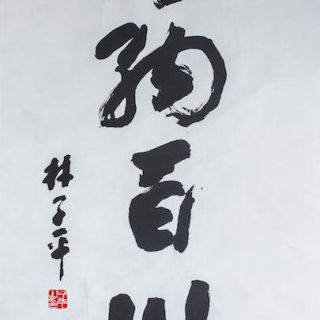 纳百川
林子平